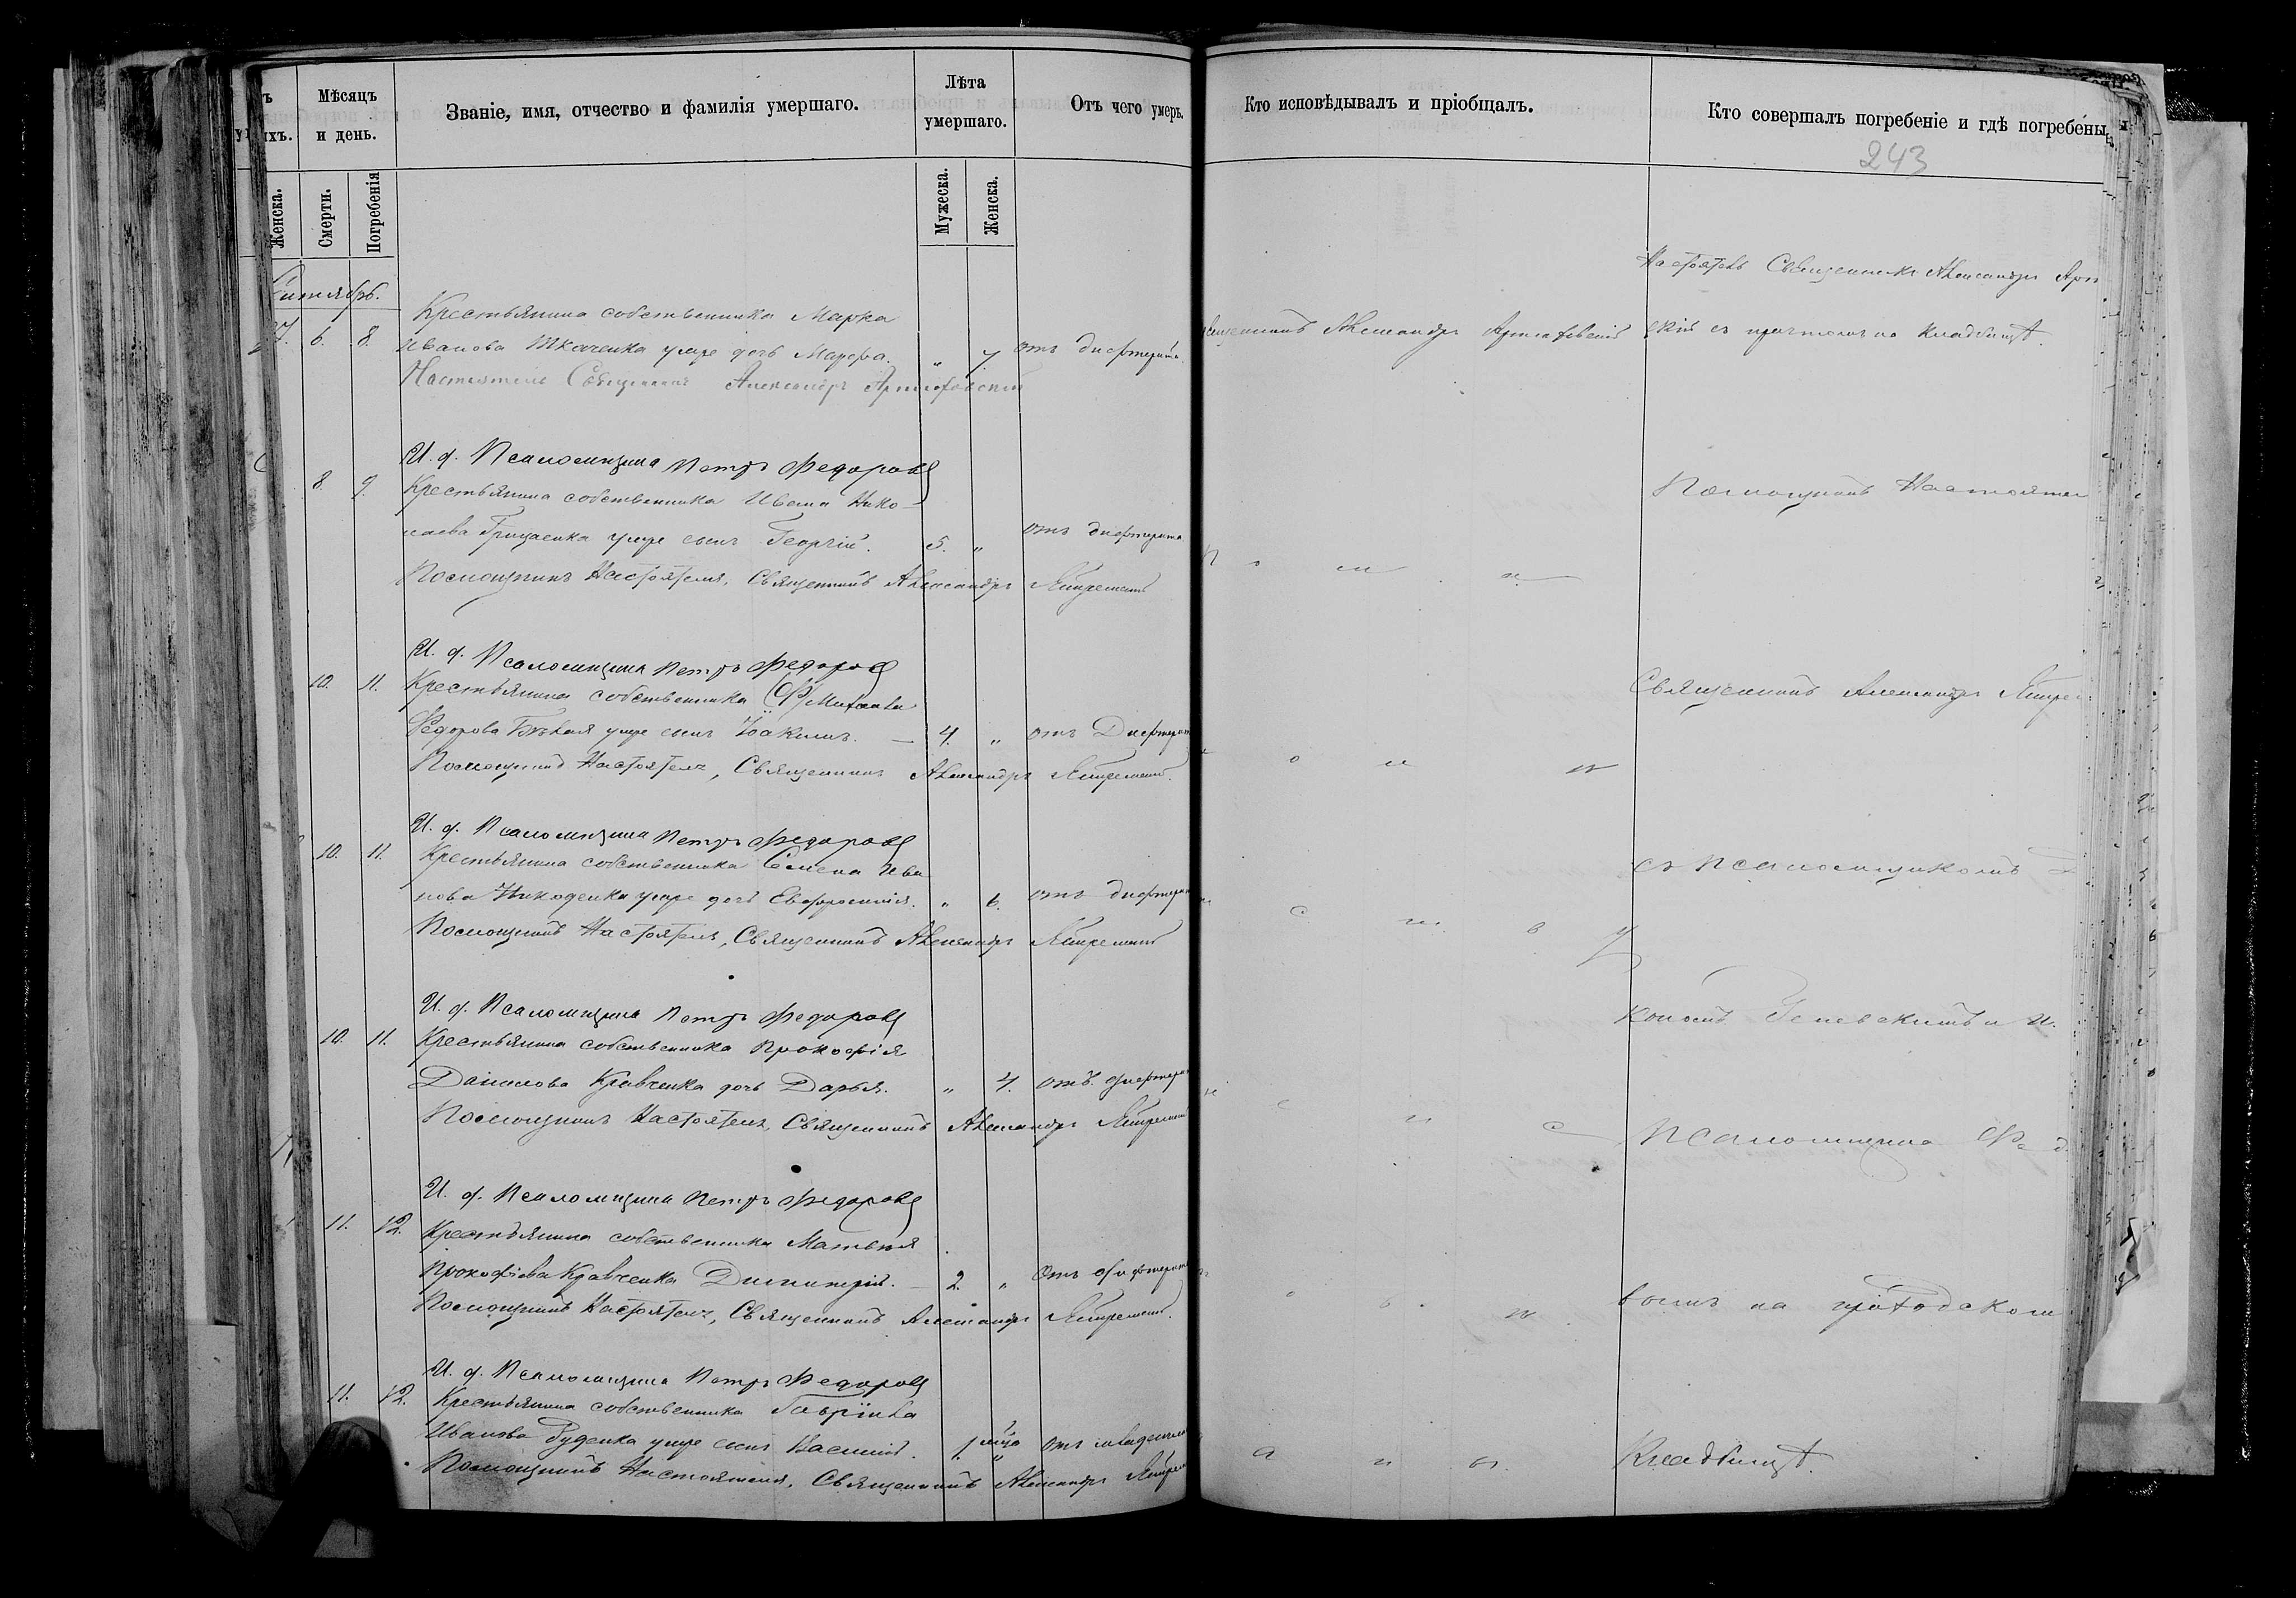 Мѣсяцъ и день.
Званіе, имя, отчество и фамилія умершаго.
Лѣта умершаго.
Отъ чего умеръ.
Кто исповѣдывалъ и пріобщалъ.
Кто совершалъ погребеніе и гдѣ погребены
243
Женска.
Смерти.
Погребенія
Мужеска.
Женска.
Настоятель Священникъ Александръ
6. 8. Крестьянина собственника Марка
Иванова Ткаченка умре дочь Марфа. „ 7. отъ дифтерита
Священникъ Александръ
скій съ причтомъ на кладбищѣ.
Настоятель Священникъ Александръ
И. д. Псаломщика Петръ Федоровъ
8. 9. Крестьянина собственника Ивана Нико-
лаева Грицаенка умре сынъ Георгій. 5. „ отъ дифтерита
Помощникъ Настоятеля, Священникъ Александръ
Помощникъ Настоятел
И. д. Псаломщика Петръ Федоровъ
10. 11. Крестьянина собственника Михаила
Федорова умре сынъ Іоакимъ. 4. „ отъ Дифтерит
Помощникъ Настоятеля, Священникъ Александръ
Священникъ Александръ
И. д. Псаломщика Петръ Федоровъ
10. 11. Крестьянина собственника Семена Ива
нова умре дочь Евфросинія. „ 6. отъ дифтерит
Помощникъ Настоятеля, Священникъ Александръ
съ псаломщикомъ
И. д. Псаломщика Петръ Федоровъ
10. 11. Крестьянина собственника Прокофія
Данилова Кравченка дочь Дарья. „ 4. отъ дифтерит
Помощникъ Настоятеля, Священникъ Александръ
И.
псаломщика Фед
И. д. Псаломщика Петръ Федоровъ
11. 12. Крестьянина собственника Матвѣя
Прокофіева Кравченка Димитрій. 2. „ Отъ дифтерит
Помощникъ Настоятеля, Священникъ Александръ
вымъ на приходском
И. д. Псаломщика Петръ Федоровъ
11. 12. Крестьянина собственника Гавріила
Иванова Руденка умре сынъ Василій. 1 мѣся отъ
Помощникъ Настоятеля, Священникъ Александръ
Кладбищѣ.